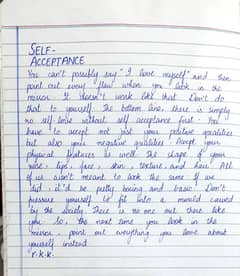 SELF-
ACCEPTANCE
You can't possibly say "I love myself" and then
point out every flaw when you look in the
mirror. It doesn't work like that. Don't do
that to yourself. The bottom line, there is simply
no self-love without self acceptance first. You
have to accept not just your positive qualities
but also your negative qualities. Accept your
physical features as well. The shape of your
nose, lips, face, skin, texture and hair. All
of us aren't meant to look the same. If we
did, it'd be pretty boring and basic. Don't
pressure yourself to fit into a mould carved
by the society. There is no one out there like
you. So, the next time you look in the
mirror, point out everything you love about
yourself instead.
r.k.k.